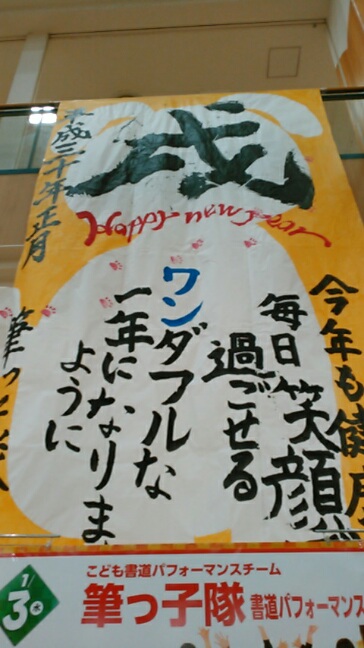 戌
平成三十年正月
Happy new year
今年も健康
毎日笑顔
過ごせる
ワンダフルな
一年になりま
ように
筆っ子隊
1/3 水
こども書道パフォーマンスチーム
筆っ子隊 書道パフォーマンス